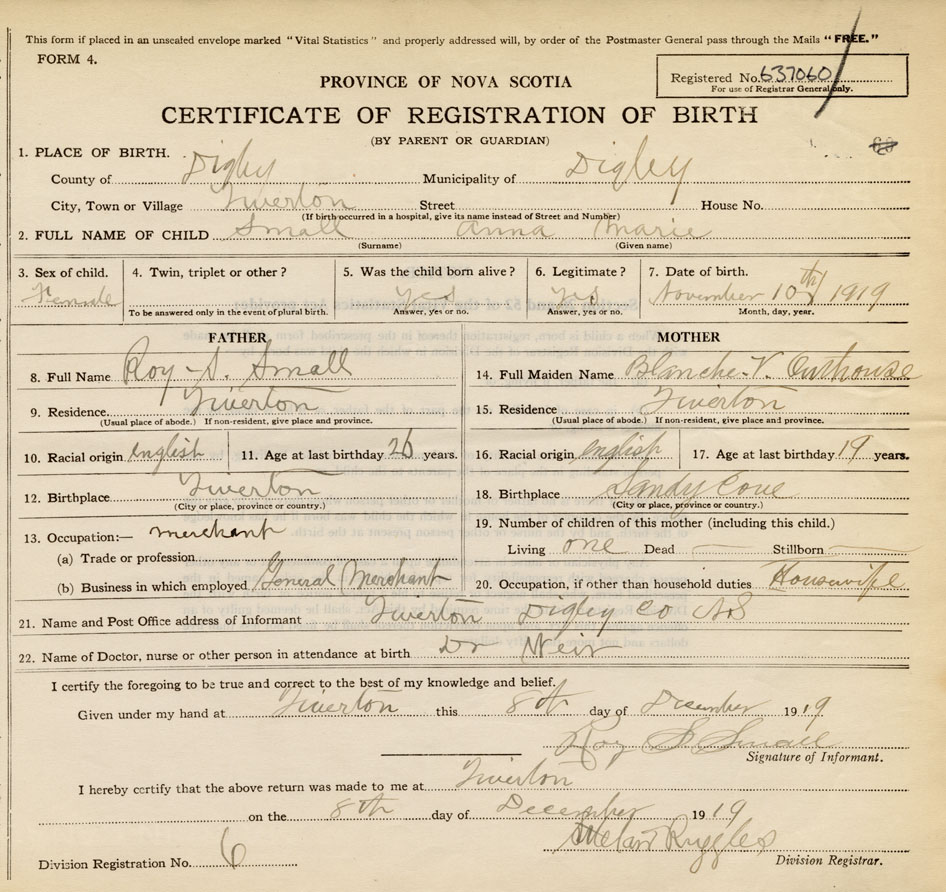 This form if placed in an unsealed envelope marked "Vital Statistics" and properly addressed will, by order of the Postmaster General pass through the Mails "FREE."
FORM 4.
Registered No. 637060
For use of Registrar General only.
PROVINCE OF NOVA SCOTIA
CERTIFICATE OF REGISTRATION OF BIRTH
(BY PARENT OR GUARDIAN)
1. PLACE OF BIRTH.
County of Digby Municipality of Digby
City, Town or Village Tiverton Street House No.
(If birth occurred in a hospital, give its name instead of Street and Number)
2. FULL NAME OF CHILD Small Anna Marie
(Surname) (Given name)
3. Sex of child. 4. Twin, triplet or other? 5. Was the child born alive? 6. Legitimate? 7. Date of birth.
Female yes yes November 10th 1919
To be answered only in the event of plural birth. Answer, yes or no. Answer, yes or no. Month, day, year.
FATHER MOTHER
8. Full Name Roy S. Small 14. Full Maiden Name Blanche V. Outhouse
9. Residence Tiverton 15. Residence Tiverton
(Usual place of abode.) If non-resident, give place and province. (Usual place of abode.) If non-resident, give place and province.
10. Racial origin english 11. Age at last birthday 26 years. 16. Racial origin english 17. Age at last birthday 19 years.
12. Birthplace Tiverton 18. Birthplace Sandy Cove
(City or place, province or country.) (City or place, province or country.)
13. Occupation:— merchant 19. Number of children of this mother (including this child.)
(a) Trade or profession Living one Dead — Stillborn —
(b) Business in which employed General Merchant 20. Occupation, if other than household duties Housewife
21. Name and Post Office address of Informant Tiverton Digby Co NS
22. Name of Doctor, nurse or other person in attendance at birth Dr Weir
I certify the foregoing to be true and correct to the best of my knowledge and belief.
Given under my hand at Tiverton this 8th day of December 1919
Roy S Small
Signature of Informant.
I hereby certify that the above return was made to me at Tiverton
on the 8th day of December 1919
Ruggles
Division Registration No. 6 Division Registrar.